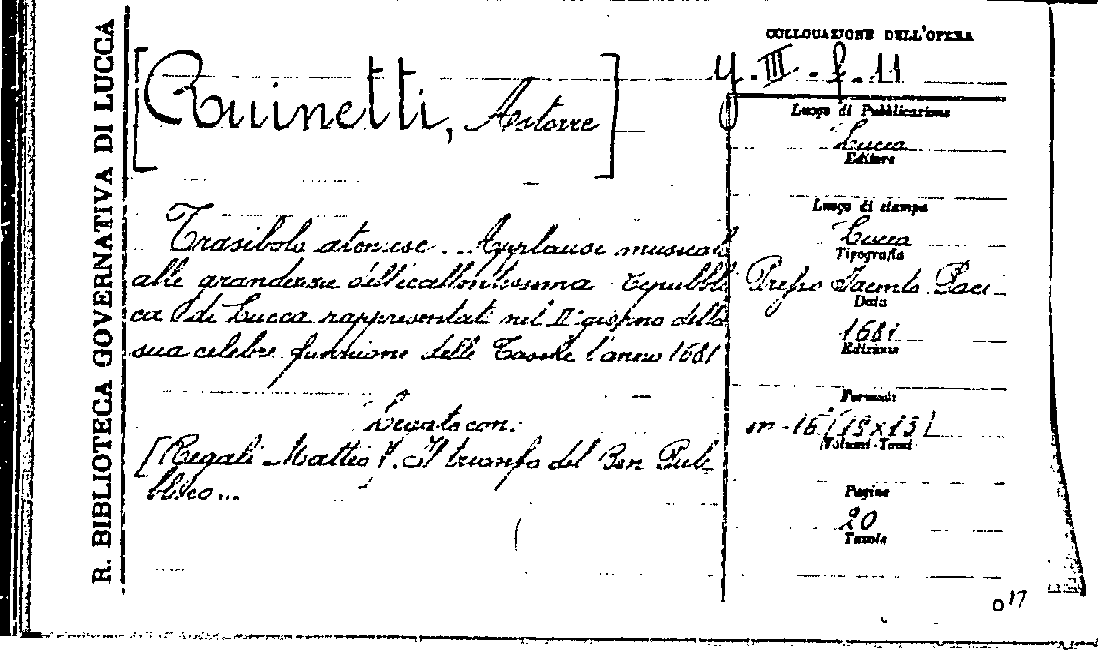 R. BIBLIOTECA GOVERNATIVA DI LUCCA
COLLOCAZIONE DELL'OPERA
y. III - f. 11
[Ruinetti, Astorre]
Luogo di Pubblicazione
Lucca
Editore
Luogo di stampa
Lucca
Tipografia
Presso Iacinto Paci
Data
1681
Edizione
Formato
in-16 (19x13)
Volumi-Tomi
Pagine
20
Tavole
Trasibolo ateniese... Applausi musicali
alle grandezze dell'eccellentissima repubbli
ca di Lucca rappresentati nel II° giorno della
sua celebre funzione delle Tasche l'anno 1681
Legato con:
[Regali Matteo]. Il trionfo del Ben Pub-
blico...
017